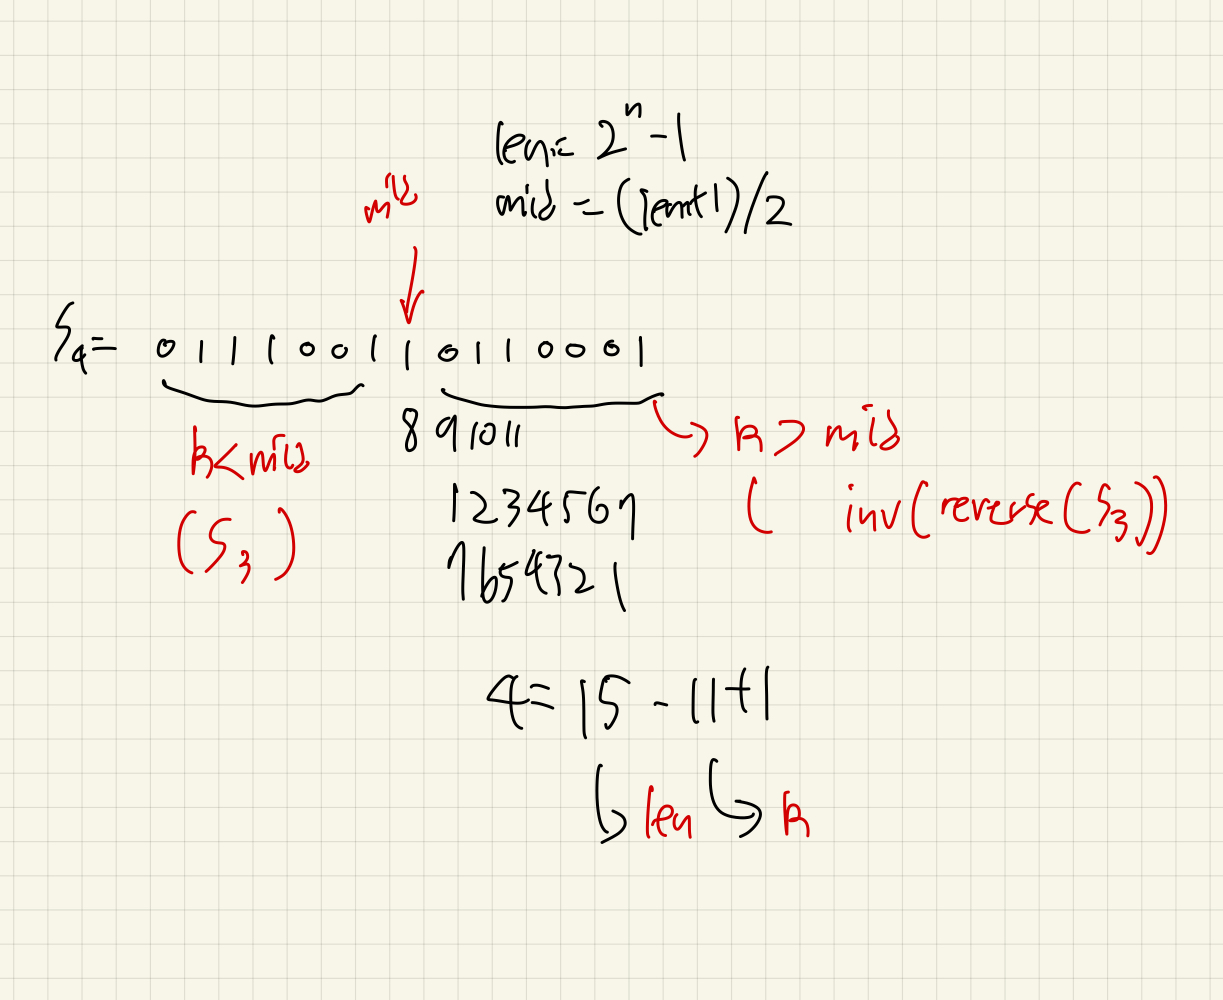 len = 2^n - 1
mid = (len+1)/2
mid
S4 = 0 1 1 1 0 0 1 1 0 1 1 0 0 0 1
8 9 10 11
k < mid
k > mid
(S3)
1 2 3 4 5 6 7
( inv(reverse(S3))
7 6 5 4 3 2 1
4 = 15 - 11 + 1
len
k